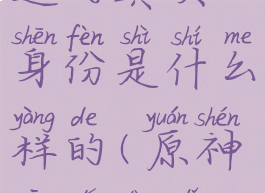 shēn fèn shì shí me
身份是什么
yàng de yuán shén
样的(原神